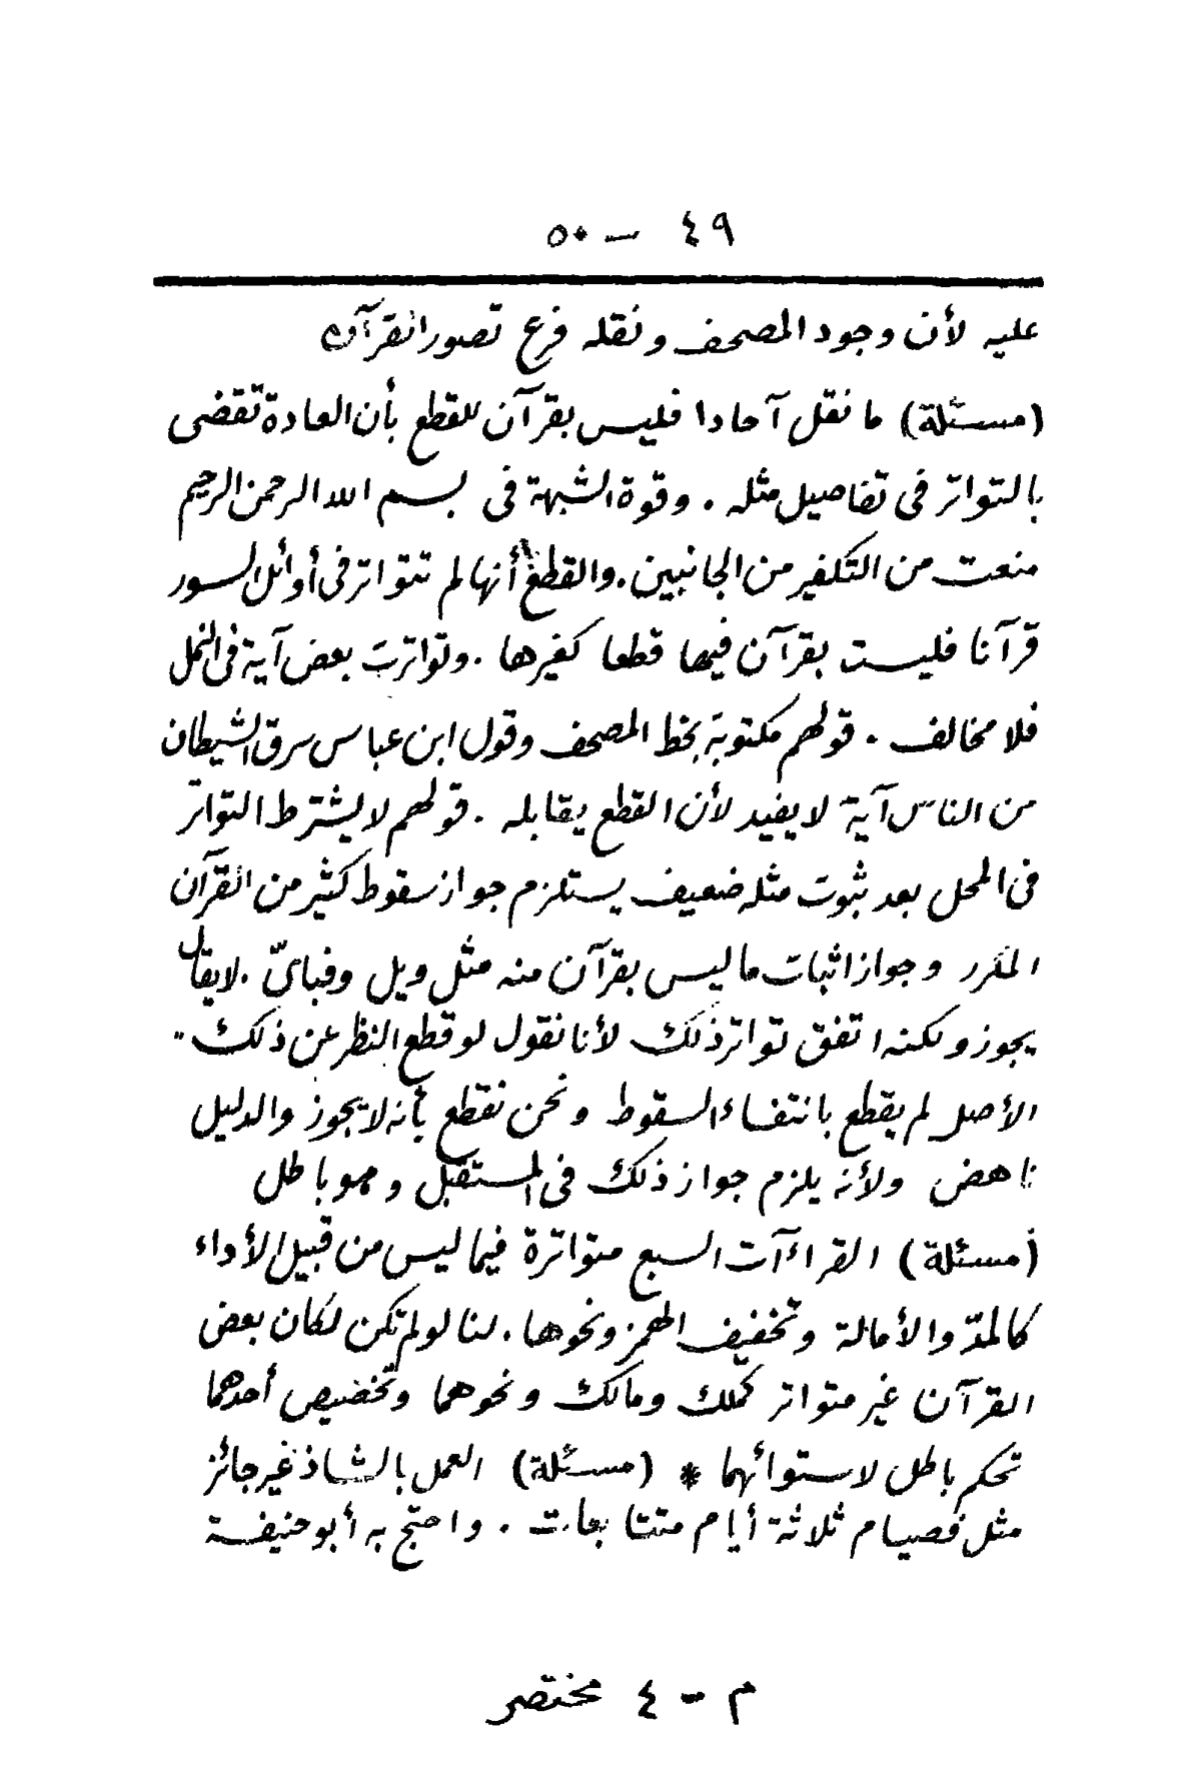 ٤٩ — ٥٠
عليه لأن وجود المصحف ونقله فرع تصور القرآن
(مسئلة) ما نقل آحادا فليس بقرآن للقطع بأن العادة تقضى
بالتواتر فى تفاصيل مثله . وقوة الشبهة فى بسم الله الرحمن الرحيم
منعت من التكفير من الجانبين . والقطع أنها لم تتواتر فى أوائل السور
قرآنا فليست بقرآن فيها قطعا كغيرها . وتواترت بعض آية فى النمل
فلا مخالف . قولهم مكتوبة بخط المصحف وقول ابن عباس سرق الشيطان
من الناس آية لا يفيد لأن القطع يقابله . قولهم لا يشترط التواتر
فى المحل بعد ثبوت مثله ضعيف يستلزم جواز سقوط كثير من القرآن
المكرر وجواز اثبات ما ليس بقرآن منه مثل ويل وفبأىّ . لا يقال
يجوز ولكنه اتفق تواتر ذلك لأنا نقول لو قطع النظر عن ذلك
الأصل لم يقطع بانتفاء السقوط ونحن نقطع بأنه لا يجوز والدليل
ناهض ولأنه يلزم جواز ذلك فى المستقبل وهو باطل
(مسئلة) القراءآت السبع متواترة فيما ليس من قبيل الأداء
كالمدّ والأمالة وتخفيف الهمز ونحوها . لنا لو لم تكن لكان بعض
القرآن غير متواتر كملك ومالك ونحوهما وتخصيص أحدهما
تحكم باطل لاستوائهما * (مسئلة) العمل بالشاذ غير جائز
مثل فصيام ثلاثة أيام متتابعات . واحتج به أبو حنيفة
م - ٤ مختصر